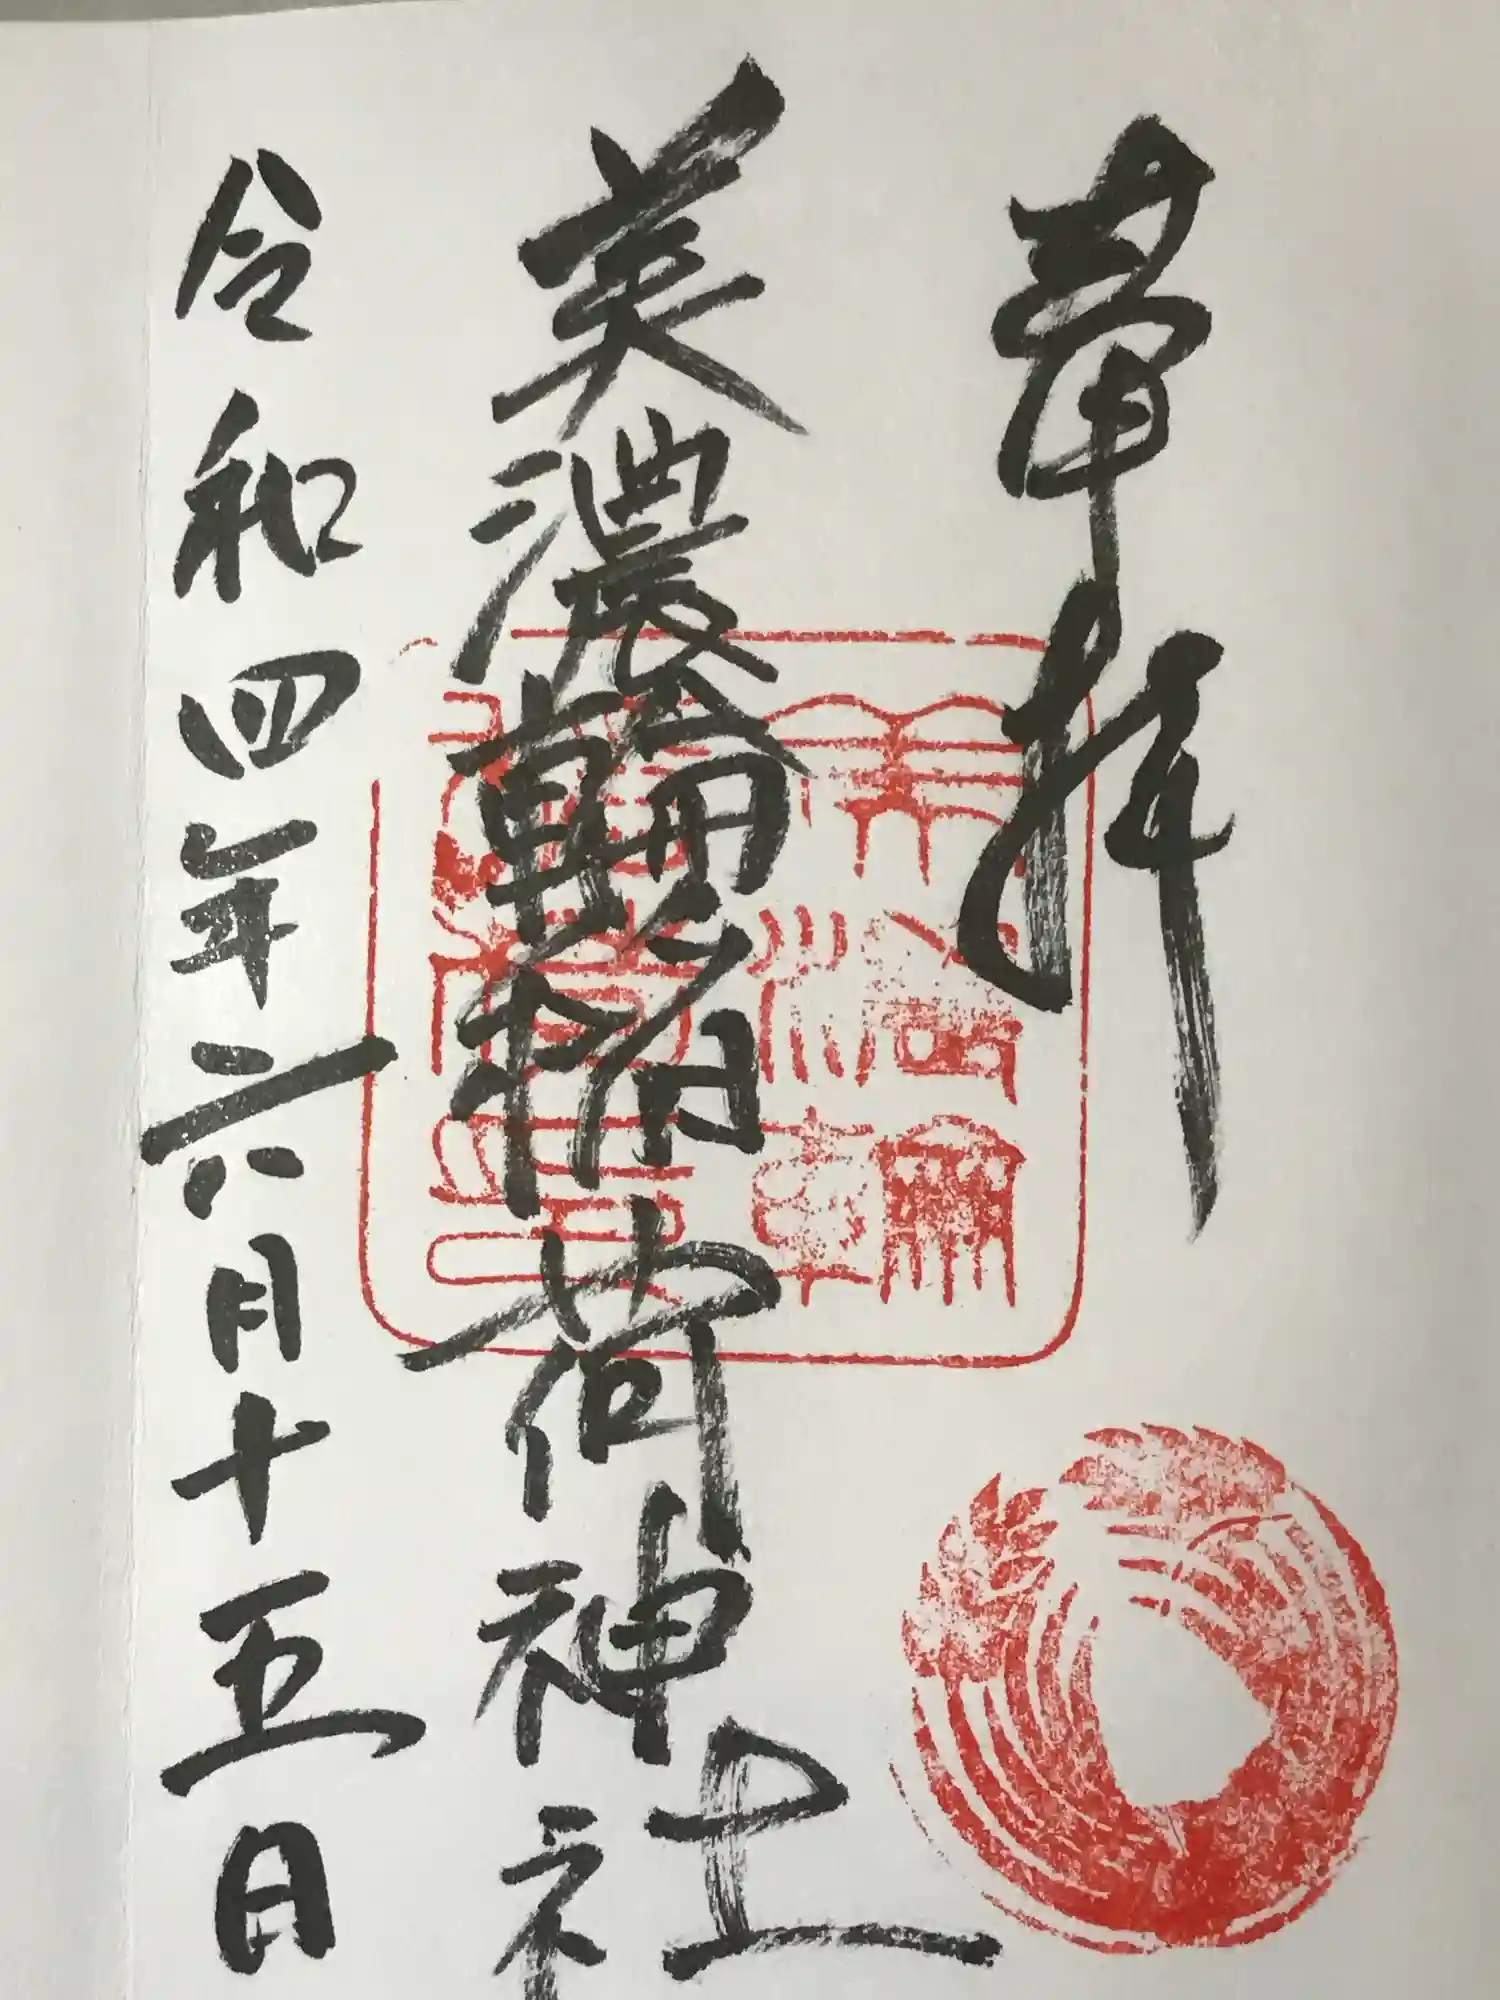 奉拝
美濃輪稲荷神社
令和四年六月十五日